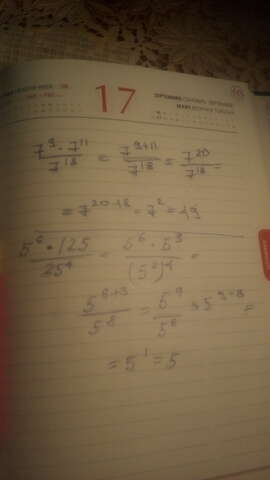 17
7⁹ · 7¹¹ / 7¹⁸ = 7⁹⁺¹¹ / 7¹⁸ = 7²⁰ / 7¹⁸ =
= 7²⁰⁻¹⁸ = 7² = 49
5⁶ · 125 / 25⁴ = 5⁶ · 5³ / (5²)⁴ =
5⁶⁺³ / 5⁸ = 5⁹ / 5⁸ = 5⁹⁻⁸ =
= 5¹ = 5